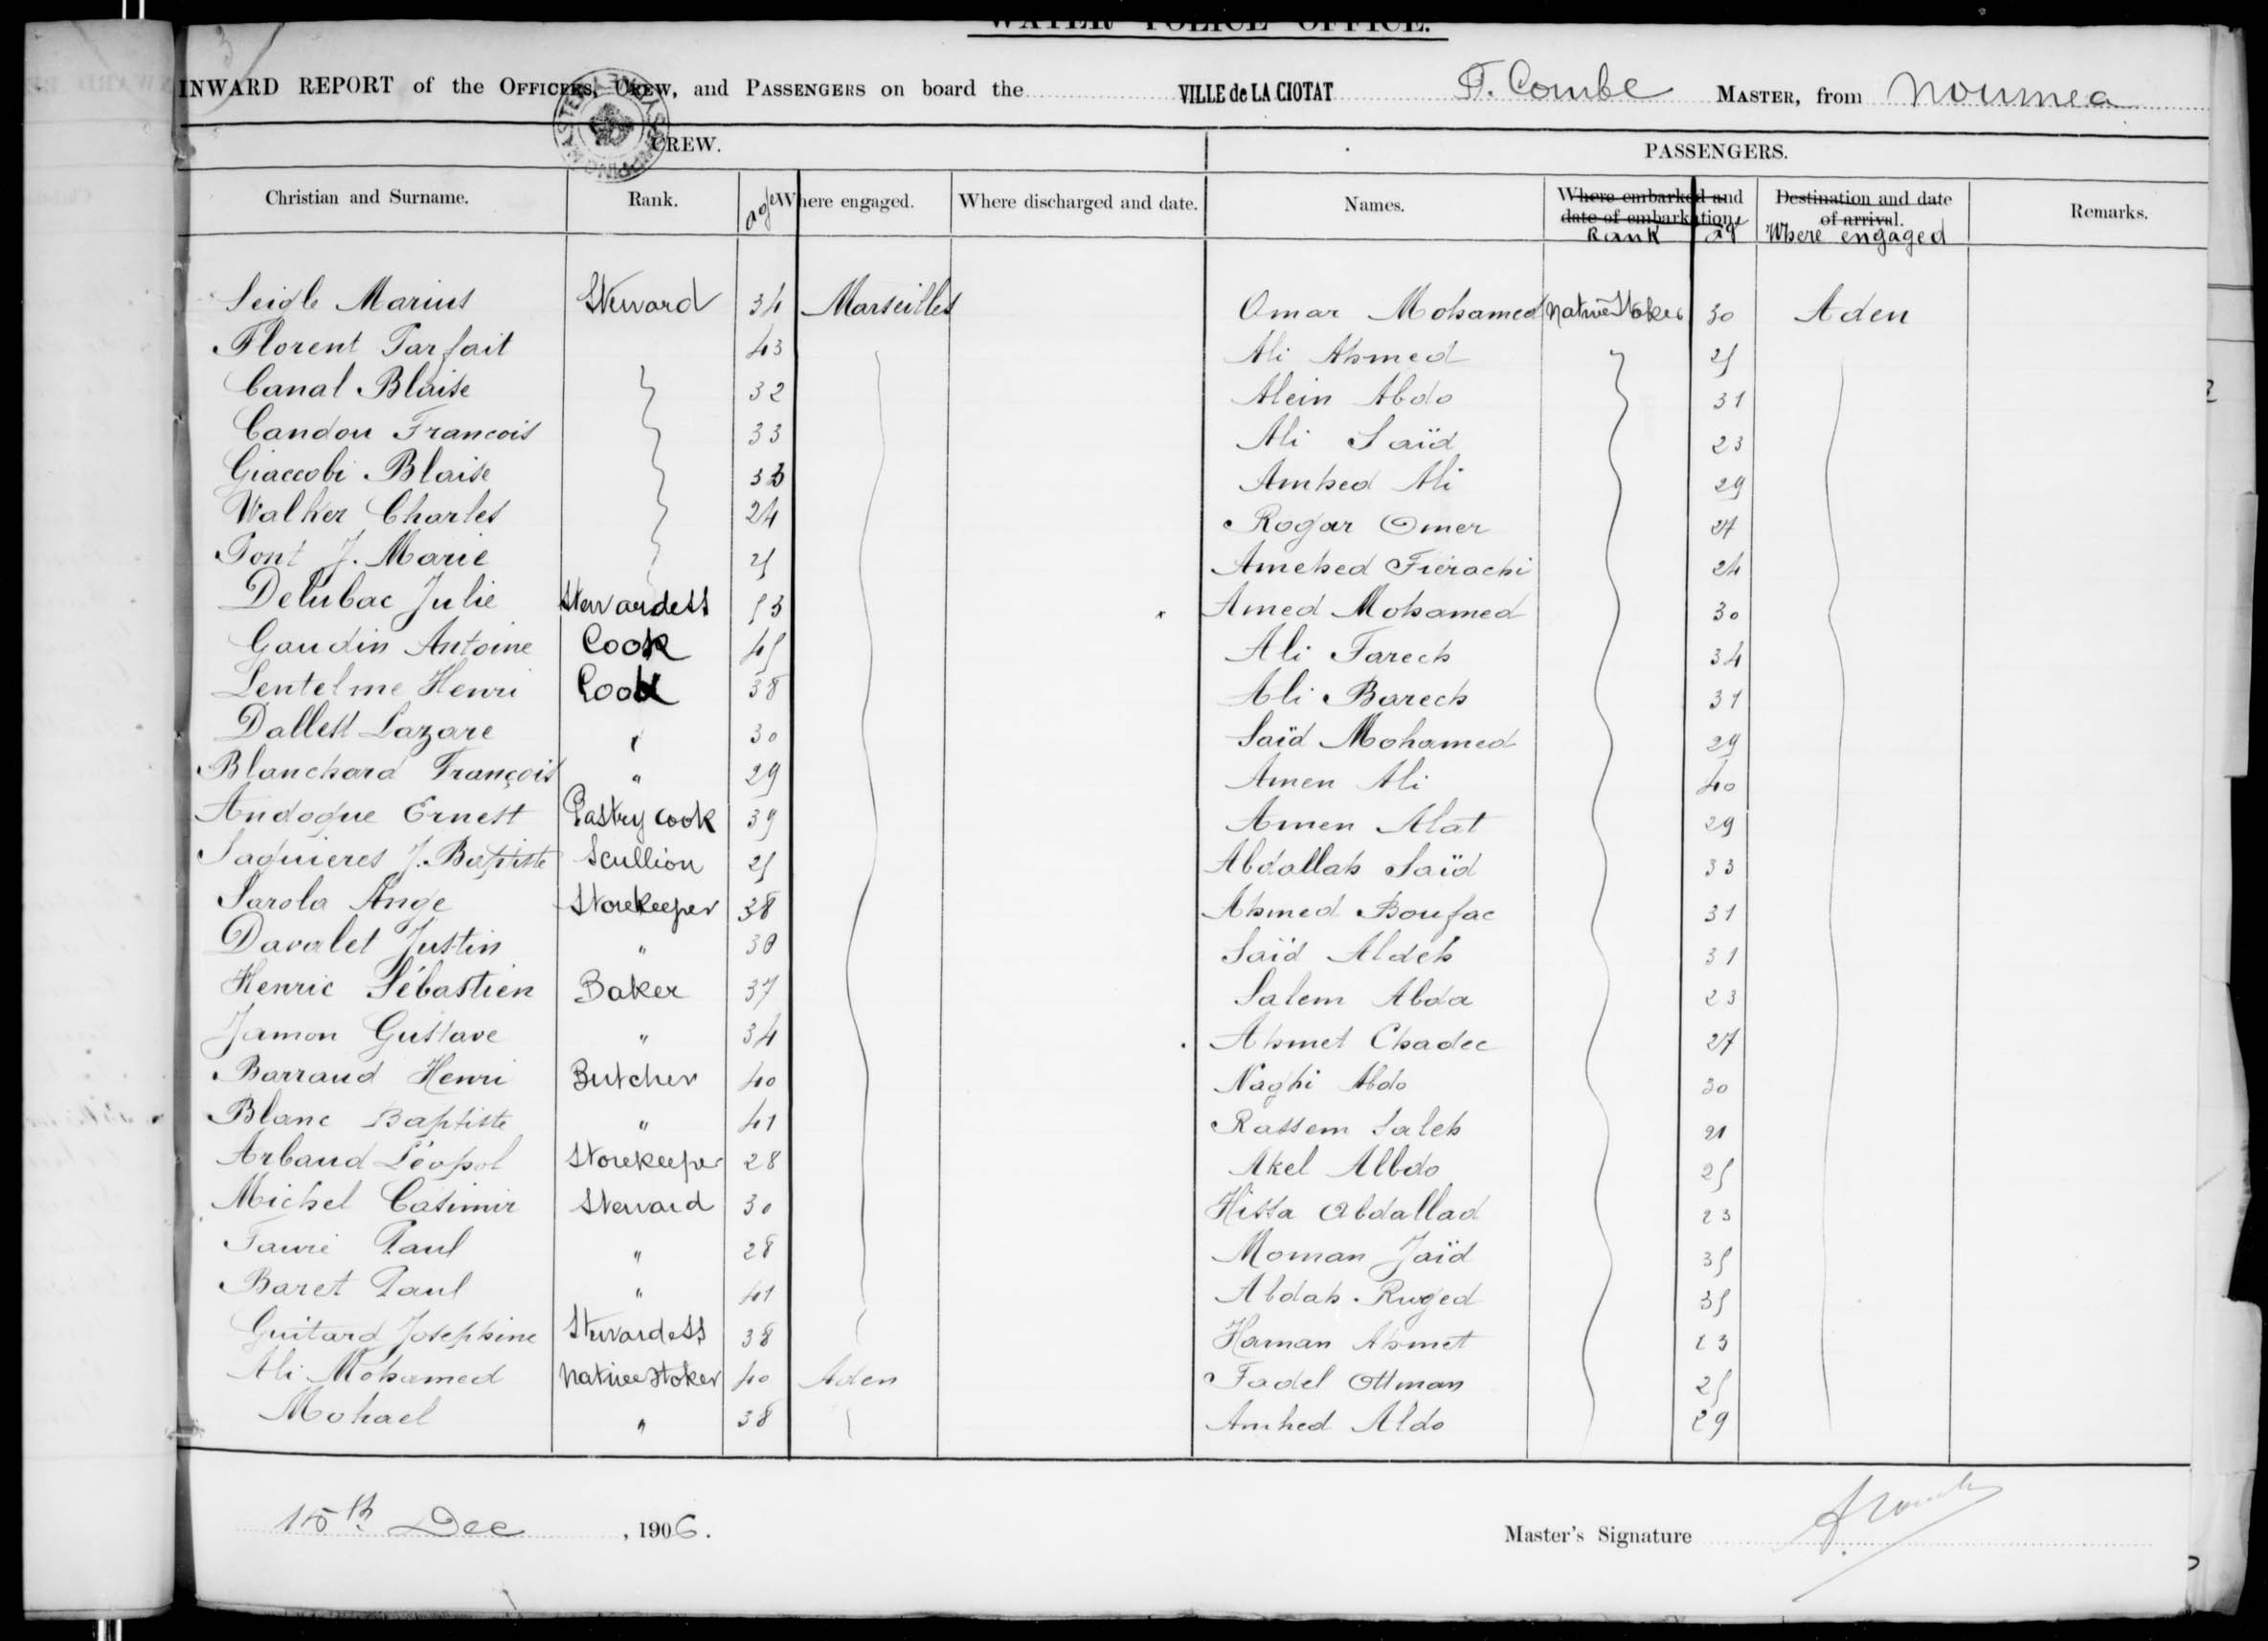 WATER POLICE OFFICE.
INWARD REPORT of the OFFICERS, CREW, and PASSENGERS on board the VILLE de LA CIOTAT F. Combe MASTER, from Noumea
CREW. PASSENGERS.
Christian and Surname. Rank. age Where engaged. Where discharged and date. Names. Where embarked and date of embarkation Rank age Destination and date of arrival. Where engaged Remarks.
Seigle Marius Steward 34 Marseilles Omar Mohamed Native Stoker 30 Aden
Florent Parfait 43 Ali Ahmed 25
Canal Blaise 32 Alein Abdo 31
Candou Francois 33 Ali Saïd 23
Giaccobi Blaise 33 Amhed Ali 29
Walker Charles 24 Rogar Omer 27
Pont J. Marie 25 Amehed Fierachi 24
Delubac Julie Stewardess 53 Amed Mohamed 30
Gaudin Antoine Cook 45 Ali Farech 34
Lentelme Henri Cook 38 Ali Barech 31
Dallest Lazare " 30 Saïd Mohamed 29
Blanchard François " 29 Amen Ali 40
Andoque Ernest Pastry cook 39 Amen Alat 29
Saquieres J. Baptiste Scullion 25 Abdallah Saïd 33
Sarola Ange Storekeeper 38 Ahmed Boufac 31
Davalet Justin " 30 Saïd Aldeh 31
Henric Sébastien Baker 37 Salem Abda 23
Jamon Gustave " 34 Ahmet Chadec 27
Barraud Henri Butcher 40 Naghi Abdo 30
Blanc Baptiste " 41 Rassem Saleh 21
Arbaud Léopol Storekeeper 28 Akel Albdo 25
Michel Casimir Steward 30 Hissa Abdallad 23
Faure Paul " 28 Moman Jaïd 35
Baret Paul " 41 Abdah Ruged 35
Guitard Josephine Stewardess 38 Haman Ahmet 23
Ali Mohamed Native Stoker 40 Aden Fadel Ottman 25
Mohael " 38 Amhed Aldo 29
15th Dec, 1906. Master's Signature